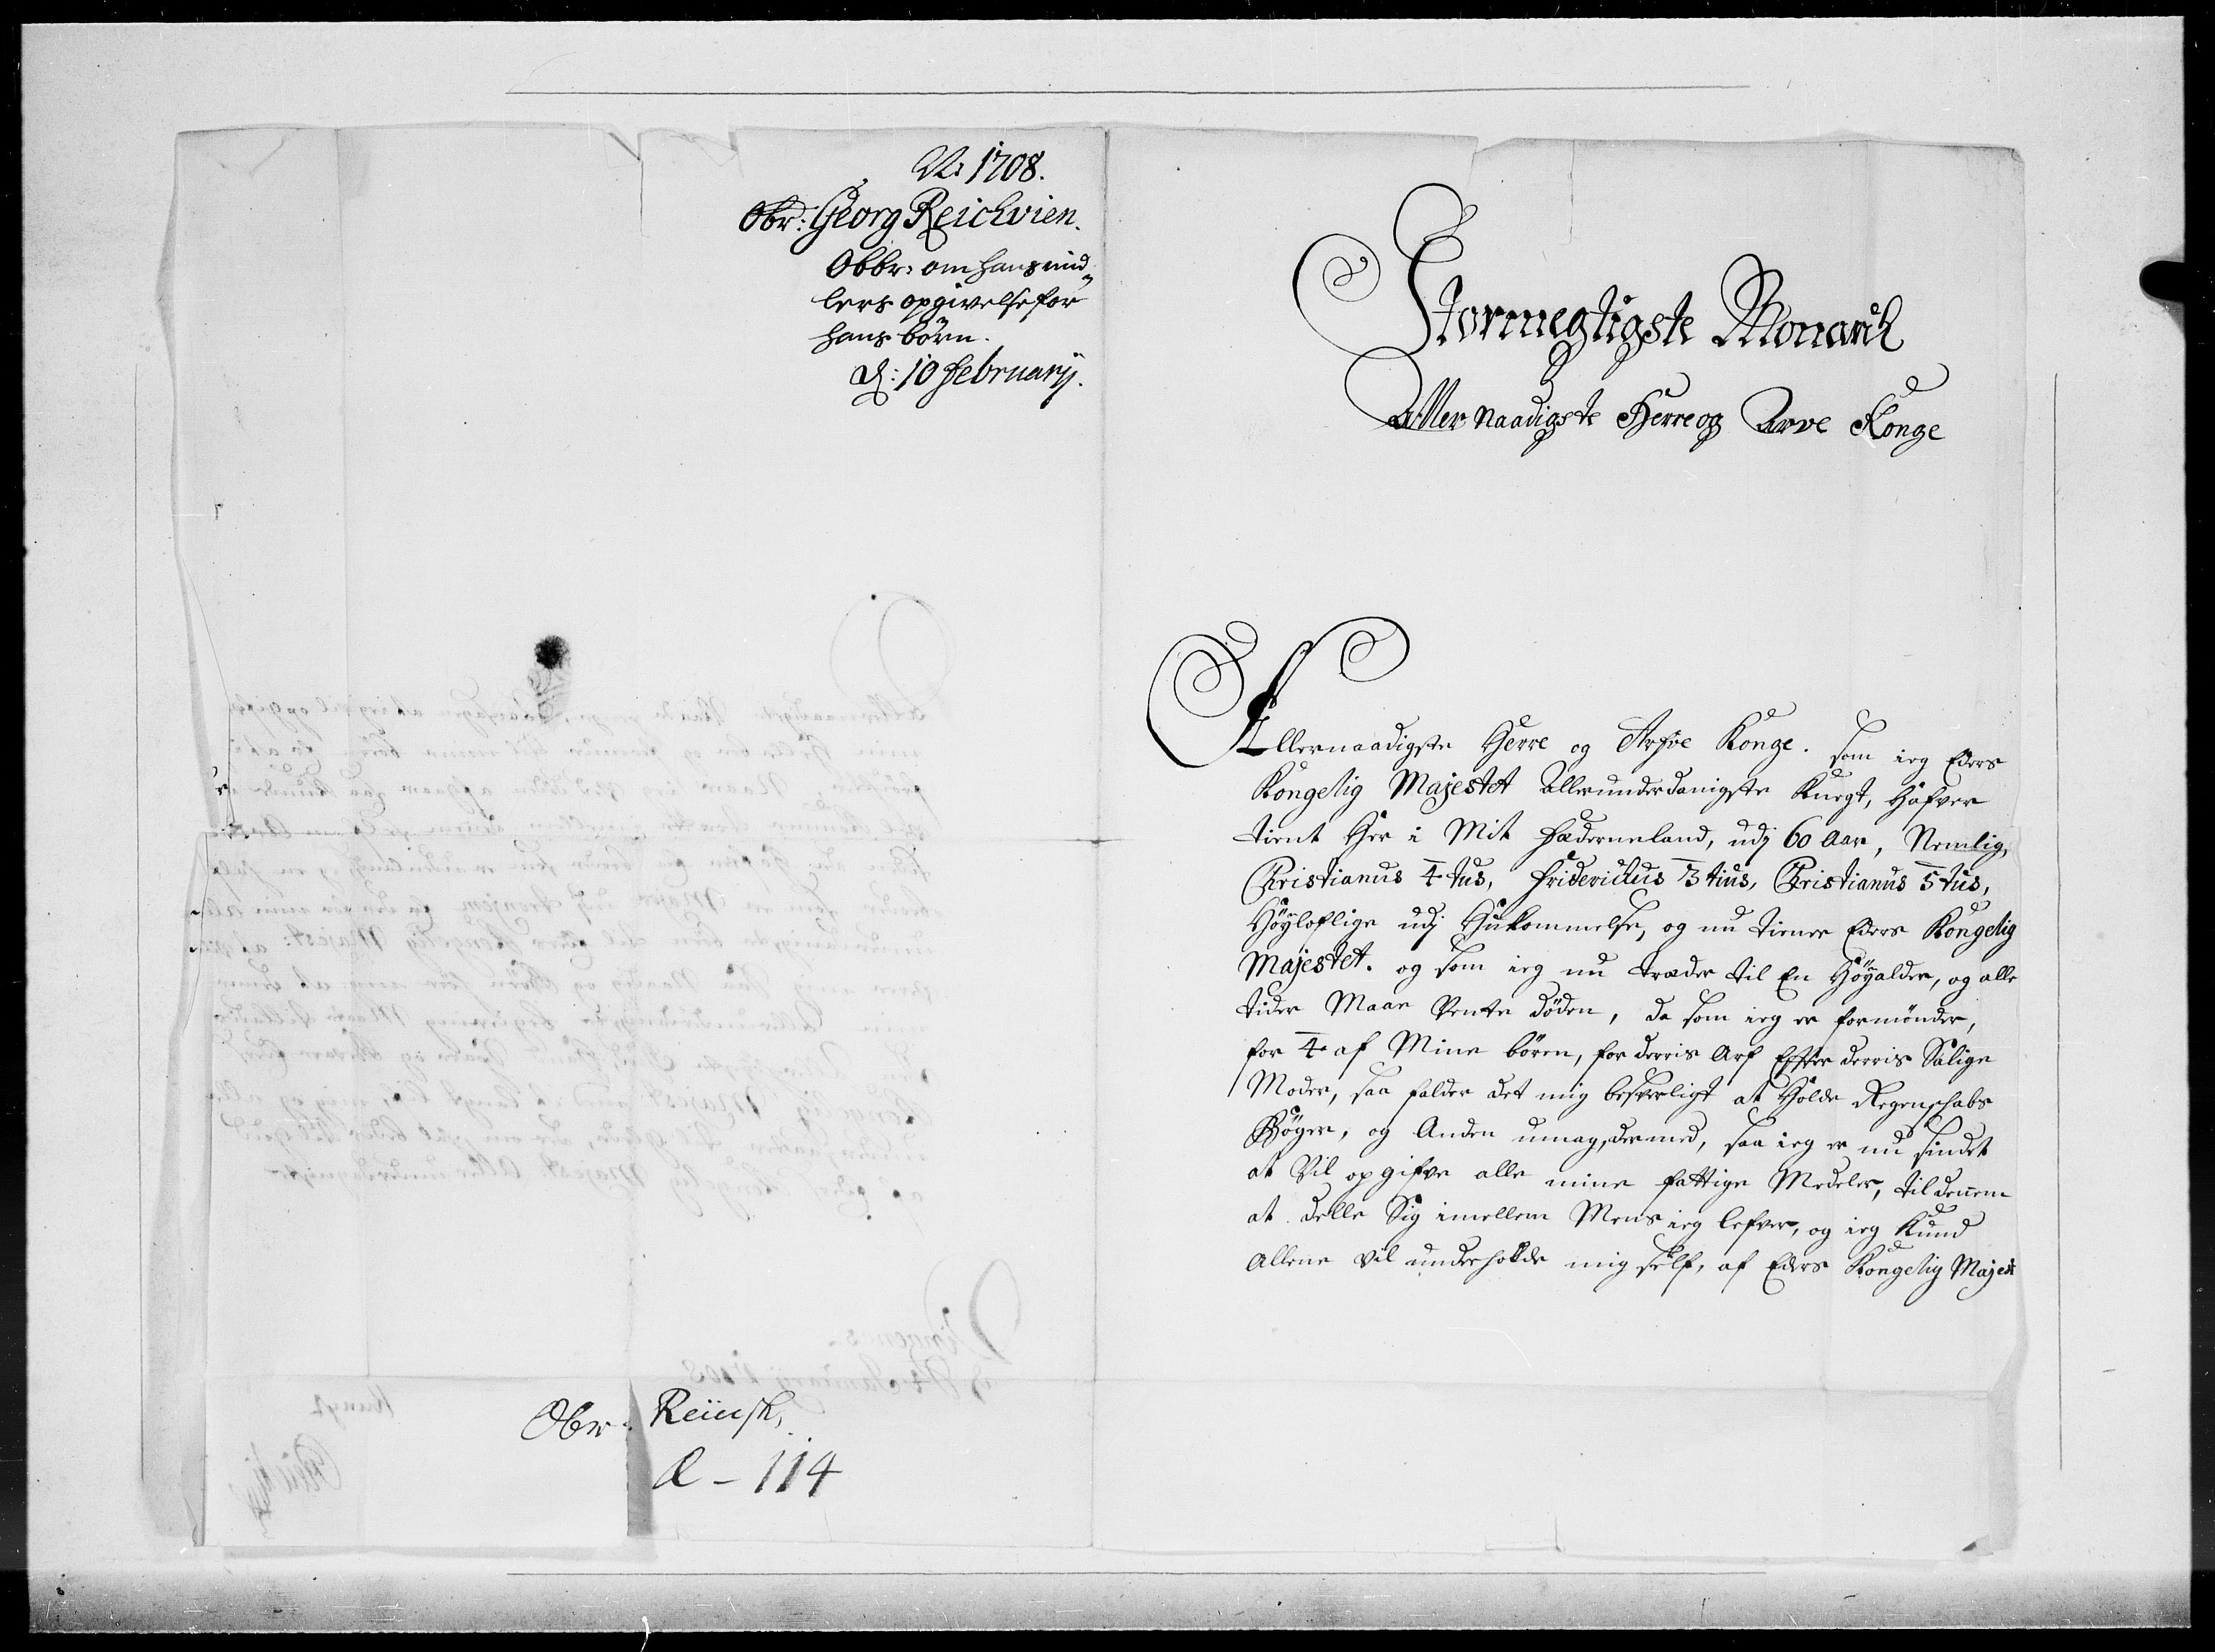 Ao 1708.
Obr: Georg Reichvien.
Obbr: om hans mid„
lers opgivelse for
hans börn.
d: 10 februarij.
Obr: Reiusk,
A - 114
Stormegtigste Monarch
Aller Naadigste Herre og Arve Konge
Allernaadigste Herre og Arfve Konge. Som ieg Eders
Kongelig Majestet Allerunderdanigste Knegt, Hafver
tient Her i Mit Faderneland, udj 60 Aar, Nemlig,
Christianus 4tus, Fridericus 3tius, Christianus 5tus,
Höyloflige udj Hukommelse, og nu tiener Eders Kongelig
Majestet. og som ieg nu træder til En Höyalder, og alle
tider Maae Vente döden, da som ieg er formönder,
for 4 af Mine bören, for derris Arf Effter derris Salige
Moder, saa falder det mig besverligt at Holde Regenschabs
Böger, og Anden umag, dermed, saa ieg er nu sindet
at Vil opgifve alle mine fattige Medeler, til dennem
at delle Sig imellem Mens ieg lefver, og ieg Kund
Allene vil underholde mig self, af Eders Kongelig Majest